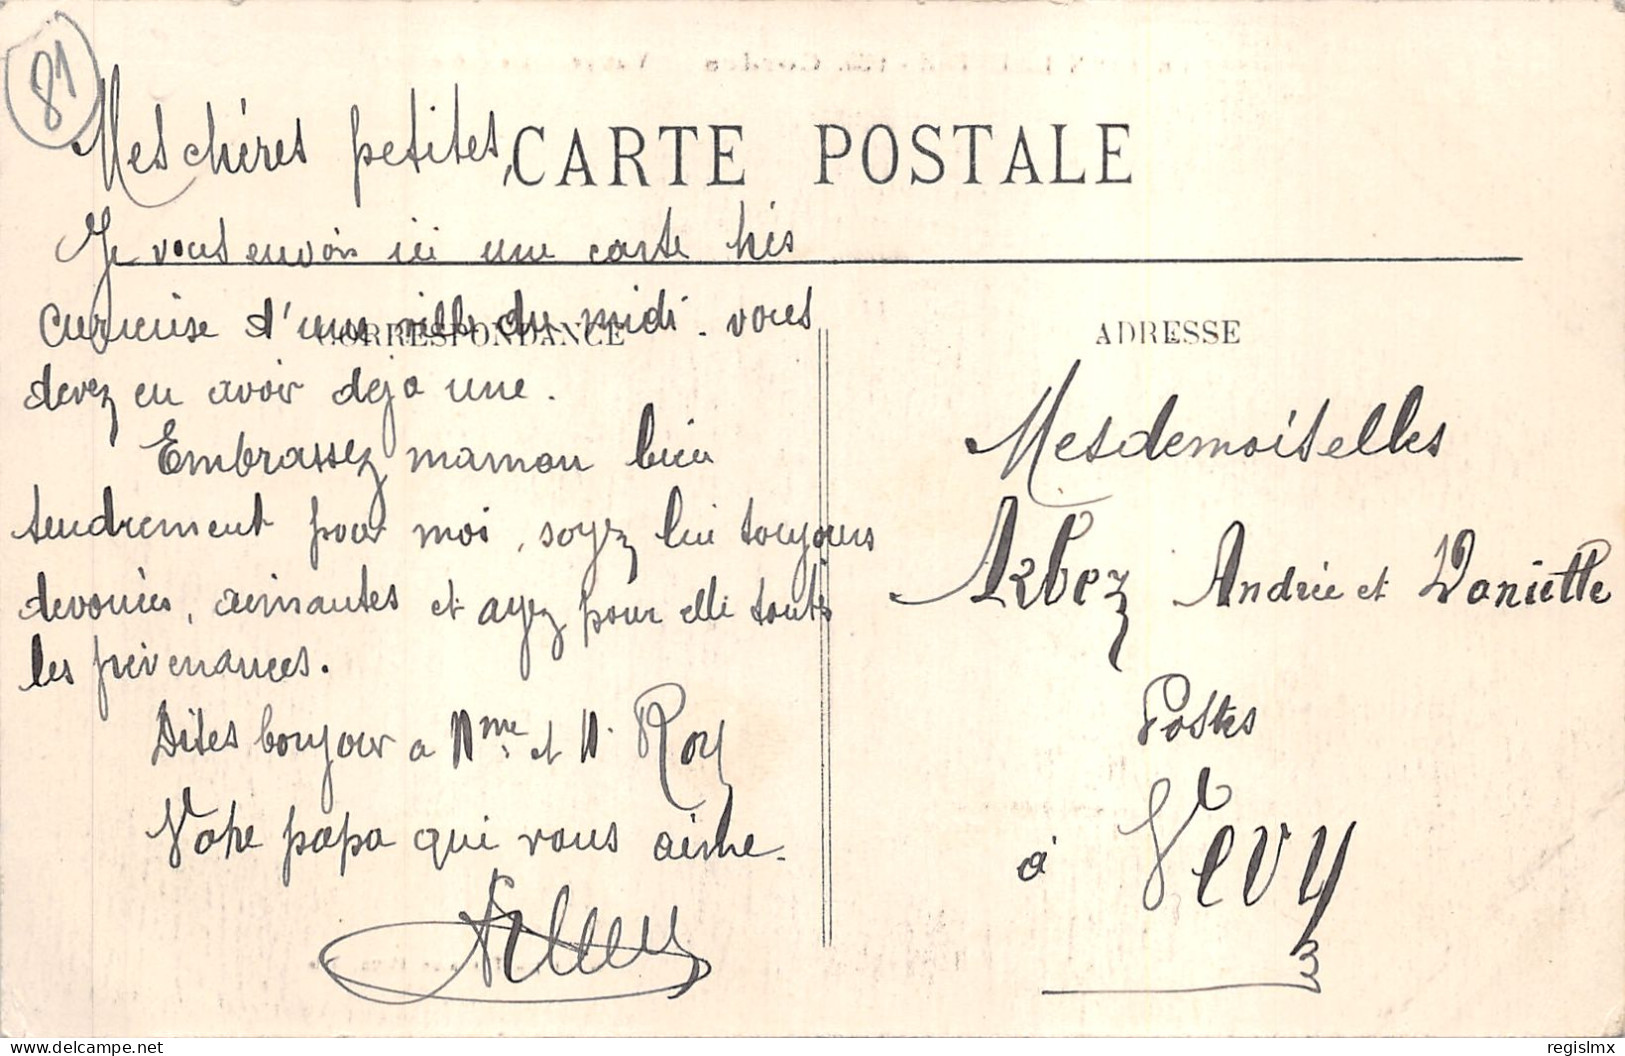 81
Mes chères petites,
CARTE POSTALE
Je vous envoie ici une carte très
curieuse d'une ville du midi. vous
CORRESPONDANCE
devez en avoir déja une.
Embrassez maman bien
tendrement pour moi, soyez lui toujours
devouées, aimantes et ayez pour elle toutes
les prévenances.
Dites bonjour a Mme et M. Roy
Votre papa qui vous aime.
ADRESSE
Mesdemoiselles
Arbez Andrée et Daniette
Postes
à Vevy
www.delcampe.net
regislmx